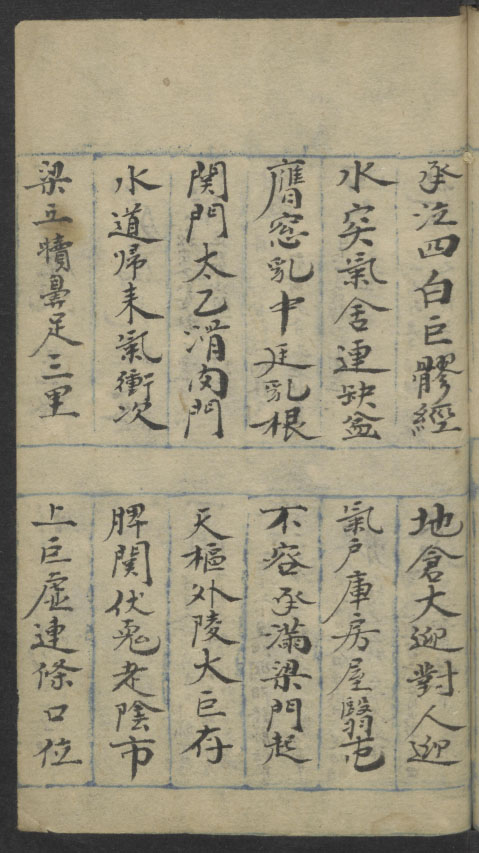 承泣四白巨髎經
地倉大迎對人迎
水突氣舍連缺盆
氣戶庫房屋翳屯
膺窓乳中延乳根
不容承滿梁門起
関門太乙滑肉門
天樞外陵大巨存
水道歸来氣衝次
脾関伏兔走陰市
梁丘犢鼻足三里
上巨虛連條口位